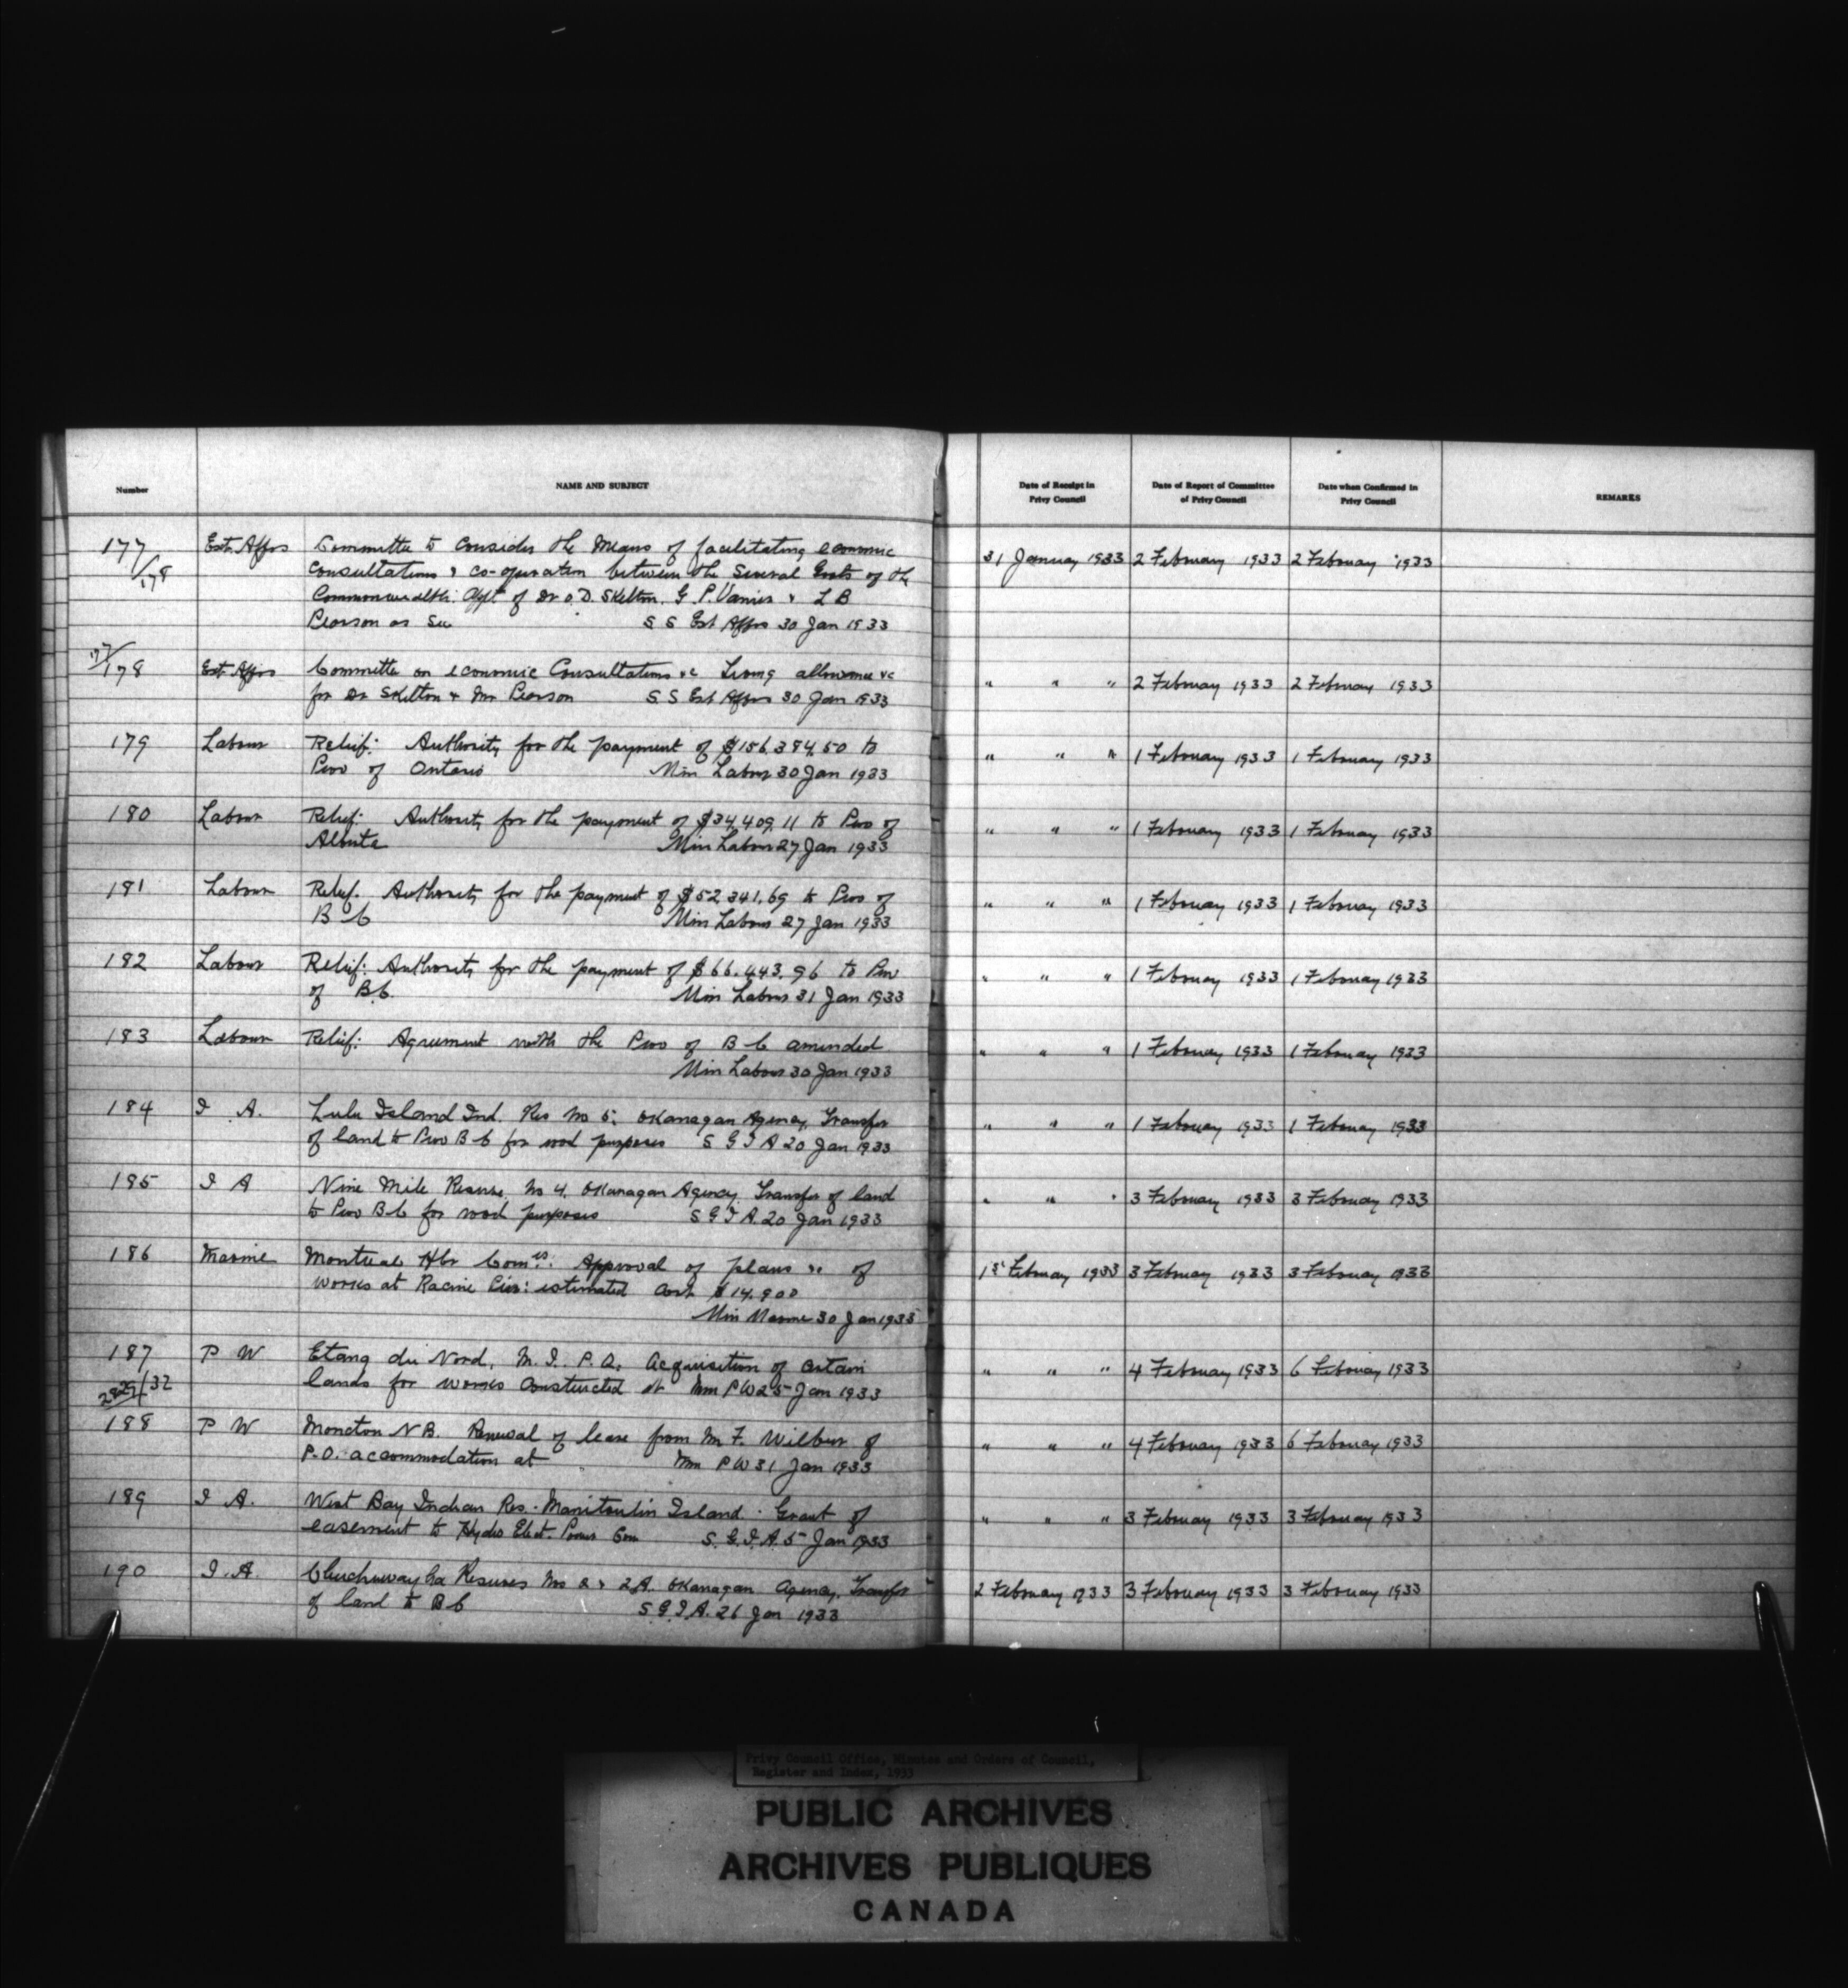 Number
NAME AND SUBJECT
Date of Receipt in
Privy Council
Date of Report of Committee
of Privy Council
Date when Confirmed in
Privy Council
REMARKS
177
/178
Ext. Affrs
Committee to consider the Means of facilitating economic
consultations & co-operation between the Several Govts of the
Commonwealth. Appt of Dr O.D. Skelton. G. P. Vanier & L B
Pearson as Sec
S S Ext Affrs 30 Jan 1933
31 January 1933
2 February 1933
2 February 1933
177/
178
Ext Affrs
Committee on economic Consultations &c Living allowance &c
for Dr Skelton & Mr Pearson
S S Ext Affrs 30 Jan 1933
" " "
2 February 1933
2 February 1933
179
Labour
Relief: Authority for the payment of $156,384.50 to
Prov of Ontario
Min Labour 30 Jan 1933
" " "
1 February 1933
1 February 1933
180
Labour
Relief: Authority for the payment of $34,409.11 to Prov of
Alberta
Min Labour 27 Jan 1933
" " "
1 February 1933
1 February 1933
181
Labour
Relief. Authority for the payment of $52,341.69 to Prov of
B C
Min Labour 27 Jan 1933
" " "
1 February 1933
1 February 1933
182
Labour
Relief: Authority for the payment of $66.443.96 to Prov
of B.C.
Min Labour 31 Jan 1933
" " "
1 February 1933
1 February 1933
183
Labour
Relief: Agreement with the Prov of B C amended
Min Labour 30 Jan 1933
" " "
1 February 1933
1 February 1933
184
I A.
Lulu Island Ind. Res No 5: Okanagan Agency. Transfer
of land to Prov B C for road purposes S G I A 20 Jan 1933
" " "
1 February 1933
1 February 1933
185
I A
Nine Mile Reserve No 4. Okanagan Agency. Transfer of land
to Prov B C for road purposes S G I A. 20 Jan 1933
" " "
3 February 1933
3 February 1933
186
Marine
Montreal Hbr Com: Approval of plans &c of
works at Racine Pier: estimated cost $14.900
Min Marine 30 Jan 1933
1st February 1933
3 February 1933
3 February 1933
187
/32
P W
Etang du Nord, M. I. P. Q: Acquisition of certain
lands for works constructed at Min P W 25 Jan 1933
" " "
4 February 1933
6 February 1933
188
P W
Moncton N B. Renewal of lease from M F. Wilbur of
P.O. accommodation at Min P W 31 Jan 1933
" " "
4 February 1933
6 February 1933
189
I A.
West Bay Indian Res. Manitoulin Island. Grant of
easement to Hydro Elect. Power Com S. G. I. A. 5 Jan 1933
" " "
3 February 1933
3 February 1933
190
I. A.
Chuchuwayha Reserves Nos 2 & 2A. Okanagan Agency. Transfer
of land to B C S G. I. A. 26 Jan 1933
2 February 1933
3 February 1933
3 February 1933
Privy Council Office, Minutes and Orders of Council,
Register and Index, 1933
PUBLIC ARCHIVES
ARCHIVES PUBLIQUES
CANADA